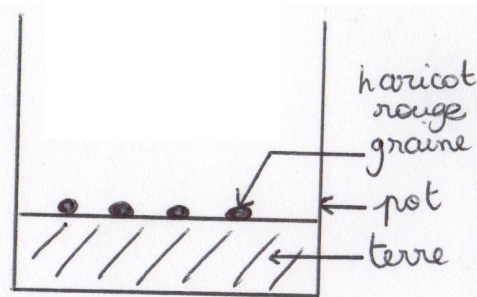 haricot
rouge
graine
pot
terre